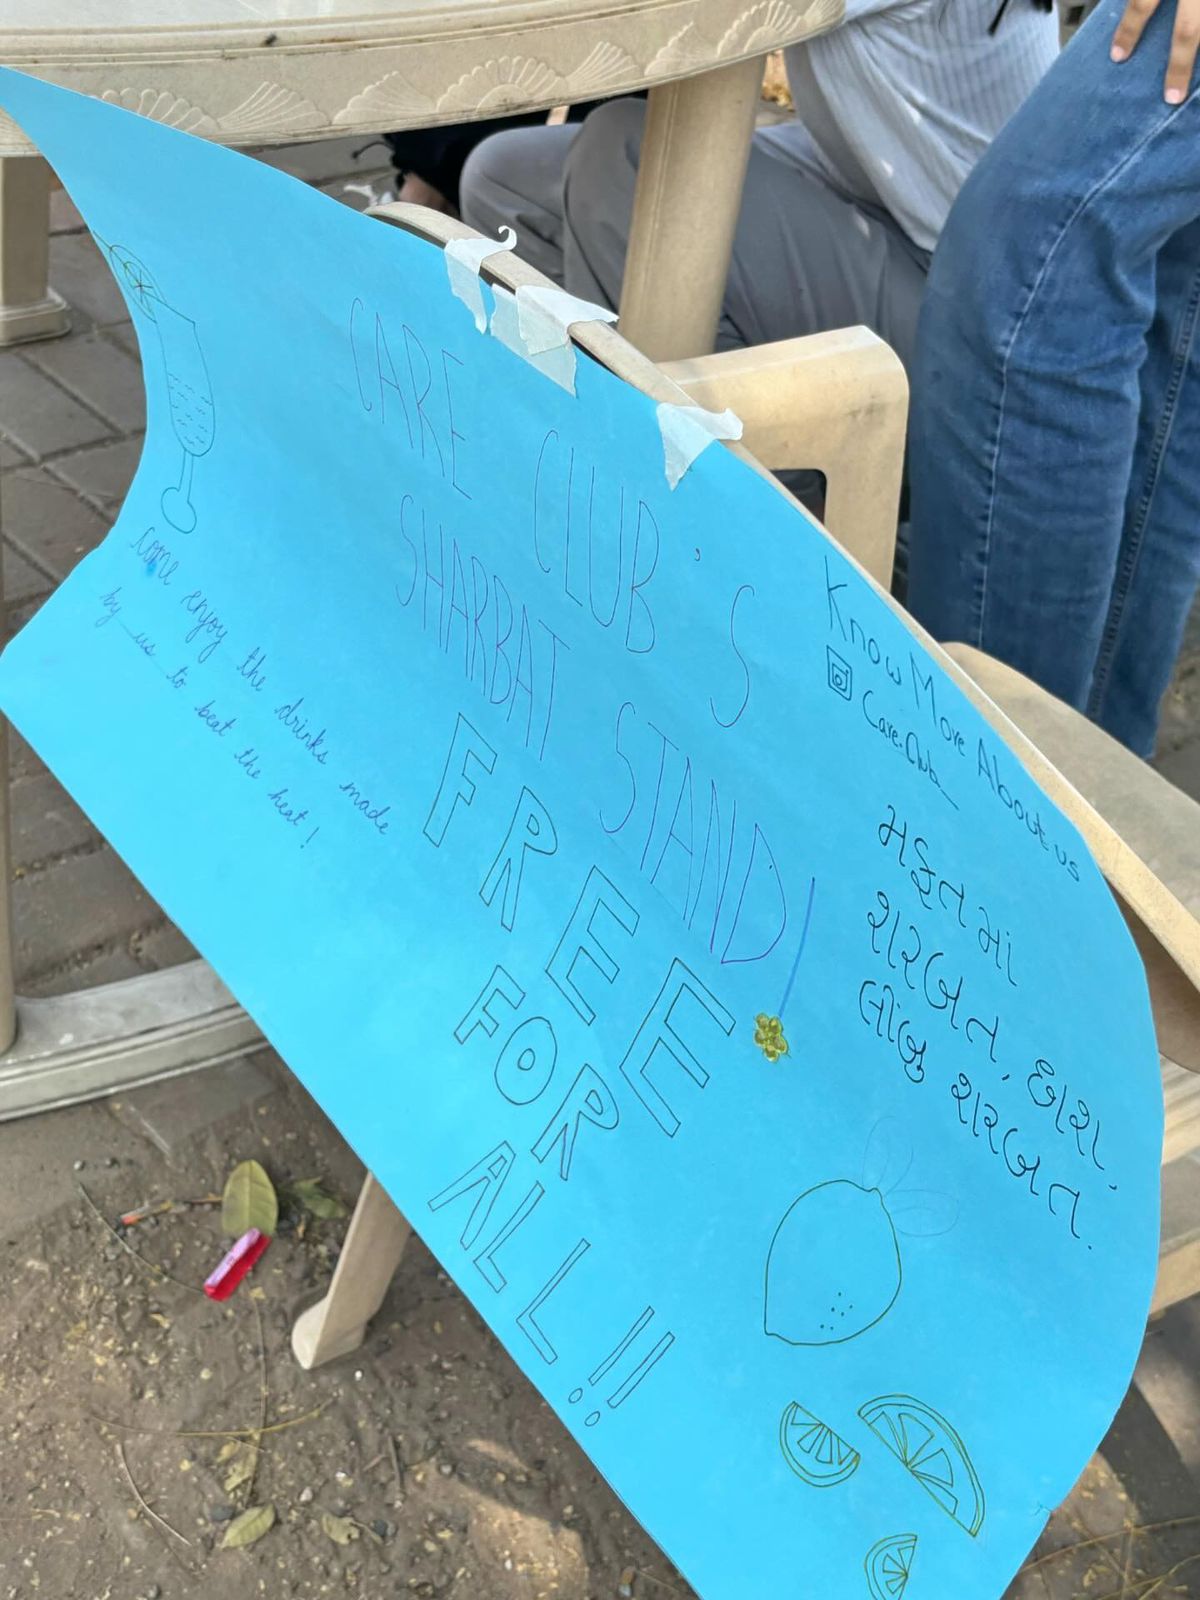 CARE CLUB'S
SHARBAT STAND!
FREE
FOR
ALL!!
come enjoy the drinks made
by us to beat the heat!
Know More About us
Care.Club_
મફત માં
શરબત, છાશ,
લીંબુ શરબત.